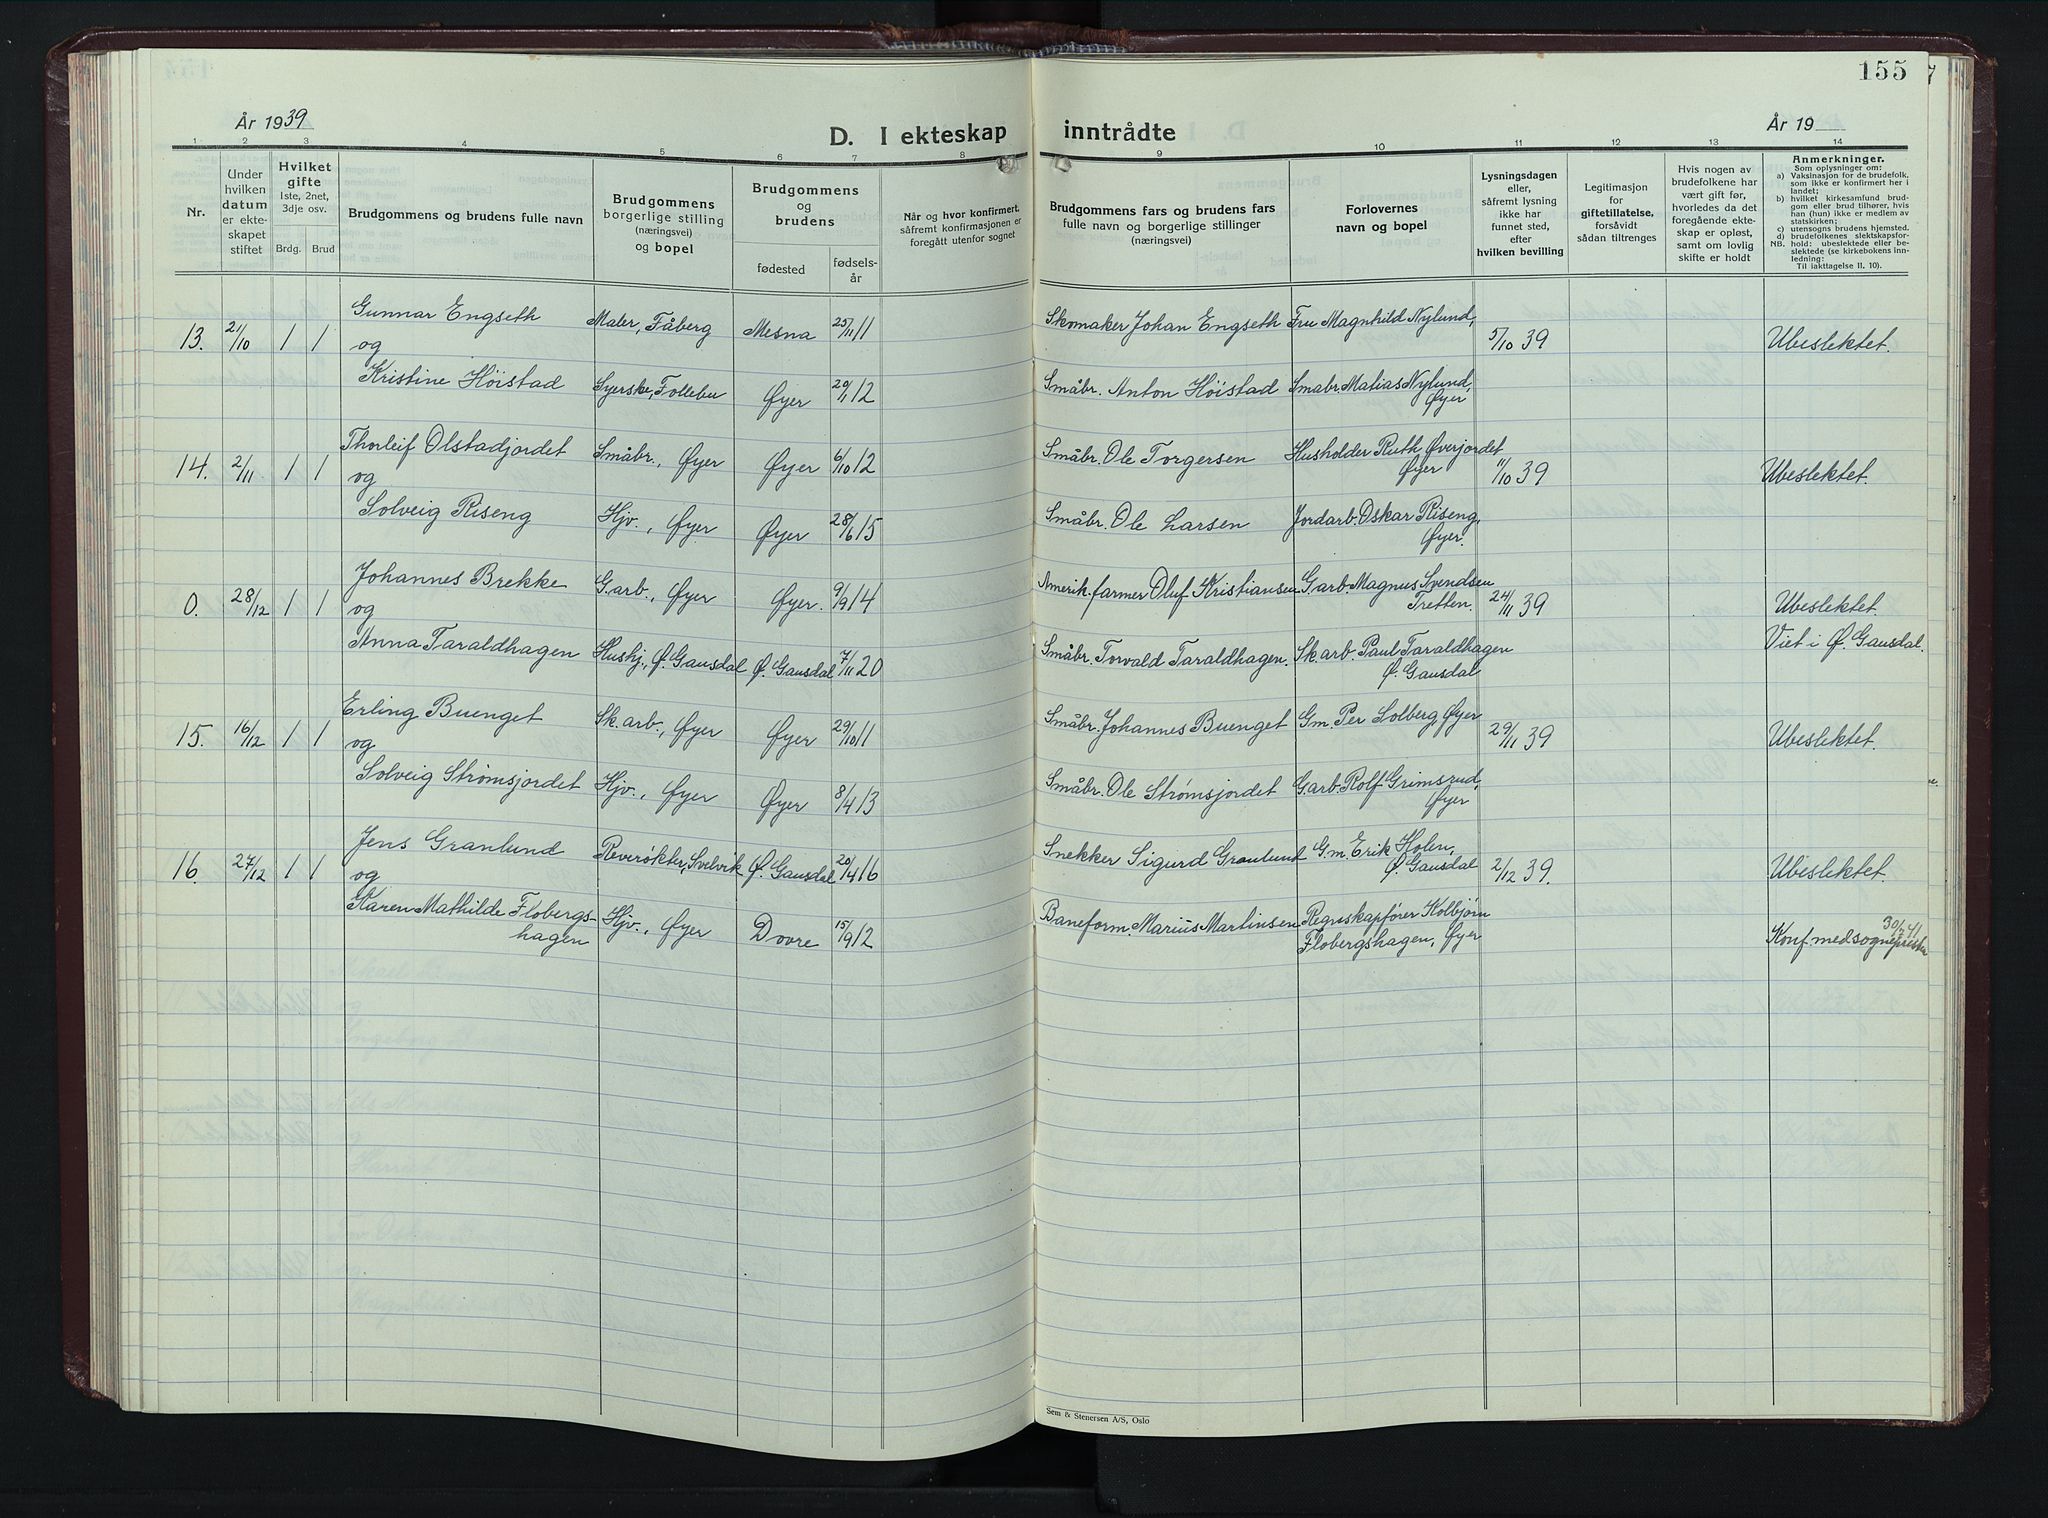 155
År 1939
D. I ekteskap inntrådte
År 19
1 2 3 4 5 6 7 8 9 10 11 12 13 14
Nr.
Under
hvilken
datum
er ekte-
skapet
stiftet
Hvilket
gifte
1ste, 2net,
3dje osv.
Brdg. Brud
Brudgommens og brudens fulle navn
Brudgommens
borgerlige stilling
(næringsvei)
og bopel
Brudgommens
og
brudens
fødested
fødsels-
år
Når og hvor konfirmert,
såfremt konfirmasjonen er
foregått utenfor sognet
Brudgommens fars og brudens fars
fulle navn og borgerlige stillinger
(næringsvei)
Forlovernes
navn og bopel
Lysningsdagen
eller,
såfremt lysning
ikke har
funnet sted,
efter
hvilken bevilling
Legitimasjon
for
giftetillatelse,
forsåvidt
sådan tiltrenges
Hvis nogen av
brudefolkene har
vært gift før,
hvorledes da det
foregående ekte-
skap er opløst,
samt om lovlig
skifte er holdt
Anmerkninger.
Som oplysninger om:
a) Vaksinasjon for de brudefolk,
som ikke er konfirmert her i
landet;
b) hvilket kirkesamfund brud-
gom eller brud tilhører, hvis
han (hun) ikke er medlem av
statskirken;
c) utensogns brudens hjemsted.
d) brudefolkenes slektskapsfor-
NB. hold: ubeslektede eller be-
slektede (se kirkebokens inn-
ledning:
Til iakttagelse II. 10).
13. 21/10 1 1 Gunnar Engseth Maler, Fåberg Mesna 25/11 11 Skomaker Johan Engseth Fru Magnhild Nylund, 5/10 39 Ubeslektet.
og
Kristine Höistad Syerske, Follebu Øyer 20/1 12 Småbr. Anton Höistad Småbr. Matias Nylund,
Øyer
14. 2/11 1 1 Thorleif Olstadjordet Småbr., Øyer Øyer 6/10 12 Småbr. Ole Torgersen Husholder Ruth Øverjordet
Øyer 11/10 39 Ubeslektet.
og
Solveig Riseng Hjv., Øyer Øyer 28/6 15 Småbr. Ole Larsen Jordarb. Oskar Riseng,
Øyer.
0. 28/12 1 1 Johannes Brekke G.arb., Øyer Øyer. 9/9 14 Amerik. farmer Oluf Kristiansen G.arb. Magnus Svendsen
Tretten. 24/11 39 Ubeslektet.
og
Anna Taraldhagen Hushj., Ø. Gausdal Ø. Gausdal 7/11 20 Småbr. Torvald Taraldhagen. Sk.arb. Paul Taraldhagen Viet i Ø. Gausdal.
Ø. Gausdal
15. 16/12 1 1 Erling Buenget Sk.arb., Øyer Øyer 29/10 11 Småbr. Johannes Buenget Gm. Per Solberg, Øyer 29/11 39 Ubeslektet.
og
Solveig Strømsjordet Hjv., Øyer Øyer 8/4 13 Småbr. Ole Strømsjordet G.arb. Rolf Grimsrud,
Øyer
16. 27/12 1 1 Jens Granlund Reverøkter, Svelvik Ø. Gausdal 20/4 16 Snekker Sigurd Granlund G.m. Erik Holen,
Ø. Gausdal 2/12 39. Ubeslektet.
og
Karen Mathilde Flobergs- Hjv., Øyer Dovre 15/9 12 Baneform. Marius Martinsen Regnskapfører Kolbjørn
hagen Flobergshagen, Øyer
Konf. med sogneprester
Sem & Stenersen A/S, Oslo